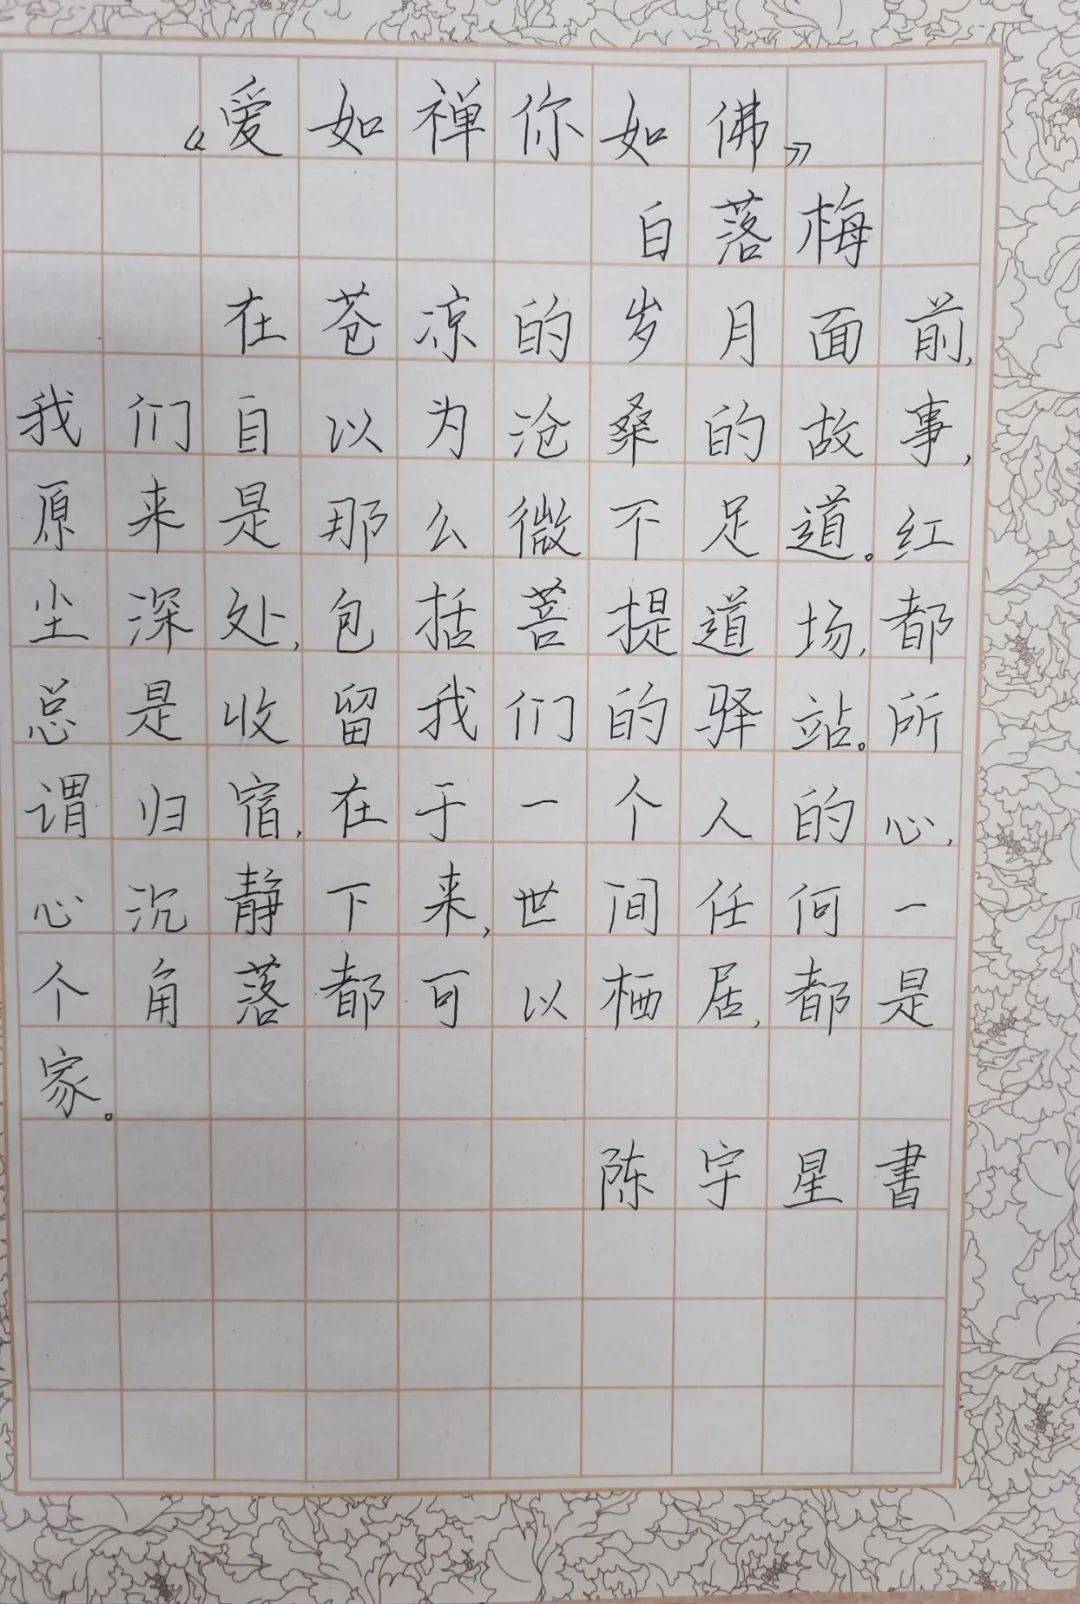 《爱如禅你如佛》
白落梅
在苍凉的岁月面前,
我们自以为沧桑的故事,
原来是那么微不足道。红
尘深处,包括菩提道场,都
总是收留我们的驿站。所
谓归宿,在于一个人的心,
心沉静下来,世间任何一
个角落都可以栖居,都是
家。
陈宇星書